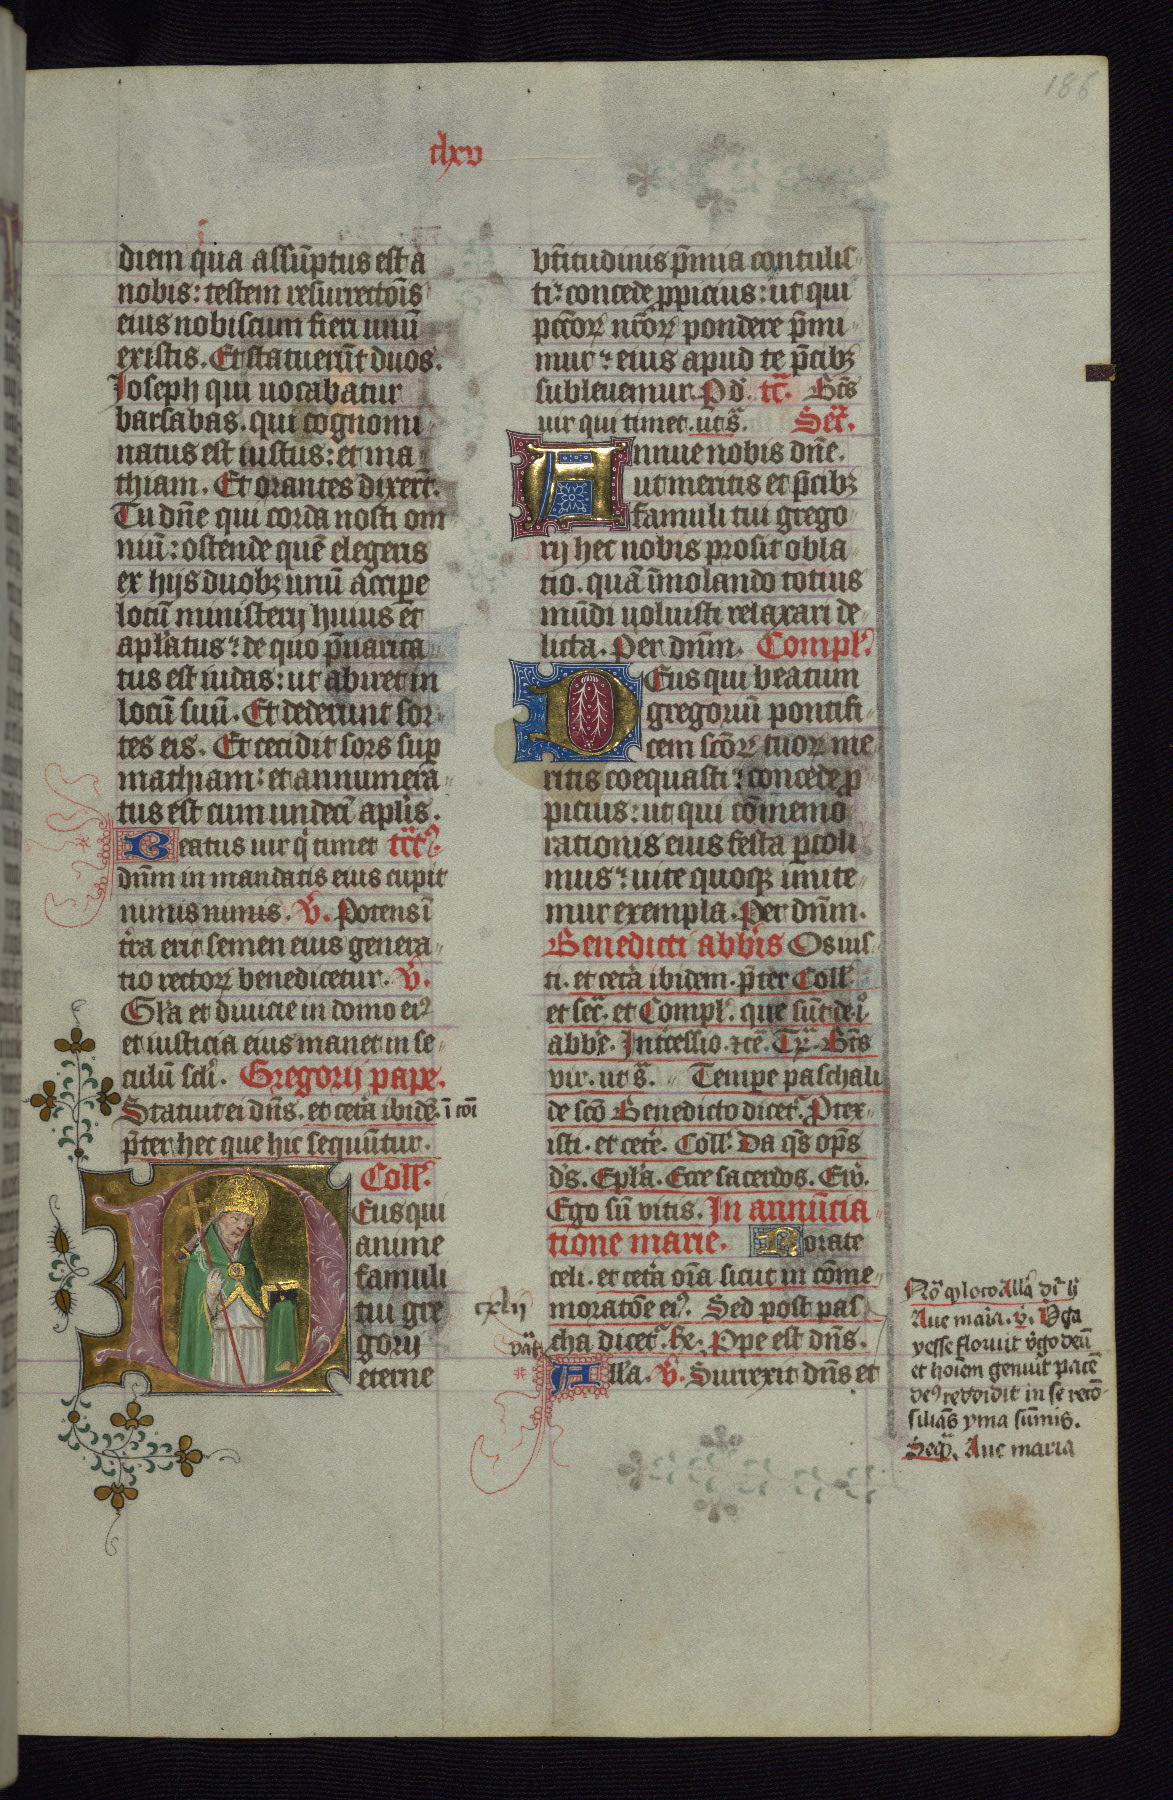 186
clxv
diem qua assūptus est a
nobis: testem resurrectōis
eius nobiscum fieri unū
existis. Et statuerūt duos.
Joseph qui uocabatur
barsabas. qui cognomi
natus est iustus: et ma
thiam. Et orantes dixerūt.
Tu dn̄e qui corda nosti om
niū: ostende quē elegeris
ex hijs duobꝫ unū accipe
locū ministerij huius et
apl̄atus: de quo p̄uarica
tus est iudas: ut abiret in
locū suū. Et dederunt sor
tes eis. Et cecidit sors sup
mathiam: et annumera
tus est cum undecī apl̄is.
Beatus uir q̄ timet
dn̄m in mandatis eius cupit
nimis nimis. V. Potens ī
tr̄a erit semen eius genera
tio rectoꝝ benedicetur. V.
Gl̄a et diuicie in domo ei
et iusticia eius manet in se
culū scl̄i. Gregorij pape.
Statuit ei dn̄s. et cetā ibidē. ī cōi
p̄ter hec que hic sequūtur.
Coll.
Deus qui
anime
famuli
tui gre
gorij
eterne
btītudinis p̄mia contulis
ti: concede ꝓpicius: ut qui
pccōꝝ nr̄oꝝ pondere p̄mi
mur: eius apud te p̄cibꝫ
subleuemur. Pd. tc̄. Btūs
uir qui timet. ut sͣ. Secͬ.
Annue nobis dn̄e.
ut meritis et p̄cibꝫ
famuli tui grego
rij hec nobis prosit obla
tio. quā īmolando totius
mūdi uoluisti relaxari de
licta. Per dn̄m. Compl.
Deus qui beatum
gregoriū pontifi
cem scōꝝ tuoꝝ me
ritis coequasti: concede ꝓ
picius: ut qui cōmemo
rationis eius festa ꝑcoli
mus: uite quoqꝫ imite
mur exempla. Per dn̄m.
Benedicti abbīs Os ius
ti. et cetā ibidem. p̄ter Coll.
et secͬ. et Compl. que sūt de ī
abbe. Intcessio. ⁊cē. Tͬ. Btūs
vir. ut sͣ. Tempe paschali
de scō Benedicto dicetͬ. Ptex
isti. et cete. Coll. Da qs̄ op̄s
ds̄. Epl̄a. Ecce sacerdos. Ew̄.
Ego sū vitis. In annūcia
tione marie. Rorate
celi. et cetā oīa sicut in cōme
cxlij moratōe ei. Sed post pas
cha dicetͬ hec. Ppe est dn̄s.
Alla. V. Surrexit dn̄s et
Nō ꝙ loco Alla dr̄ li
Aue maīa. V. Vga
yesse floruit v̄go deū
et hoīem genuit pacē
de reddidit in se recō
siliās yma sūmis.
Seqͬ. Aue maria